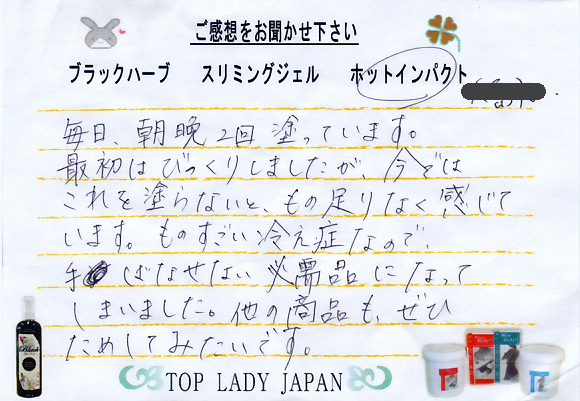 ご感想をお聞かせ下さい
ブラックハーブ　スリミングジェル　ホットインパクト
毎日、朝晩2回塗っています。
最初はびっくりしましたが、今では
これを塗らないと、もの足りなく感じて
います。ものすごい冷え症なので、
手ばなせない必需品になって
しまいました。他の商品も、ぜひ
ためしてみたいです。
TOP LADY JAPAN